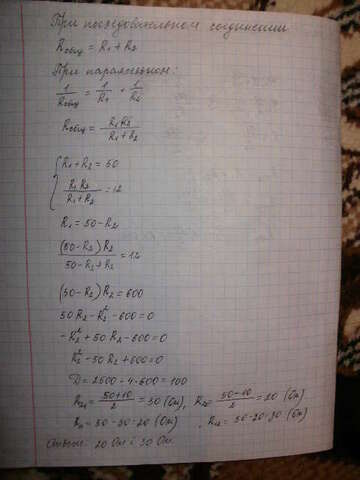 При последовательном соединении
Rобщ = R1 + R2
При параллельном:
1/Rобщ = 1/R1 + 1/R2
Rобщ = R1R2/(R1+R2)
{R1 + R2 = 50
R1R2/(R1+R2) = 12
R1 = 50 - R2
(50-R2)R2/(50-R2+R2) = 12
(50-R2)R2 = 600
50R2 - R2² - 600 = 0
-R2² + 50R2 - 600 = 0
R2² - 50R2 + 600 = 0
D = 2500 - 4·600 = 100
R21 = (50+10)/2 = 30 (Ом), R22 = (50-10)/2 = 20 (Ом)
R11 = 50-30=20 (Ом), R12 = 50-20=30 (Ом)
Ответ: 20 Ом и 30 Ом.